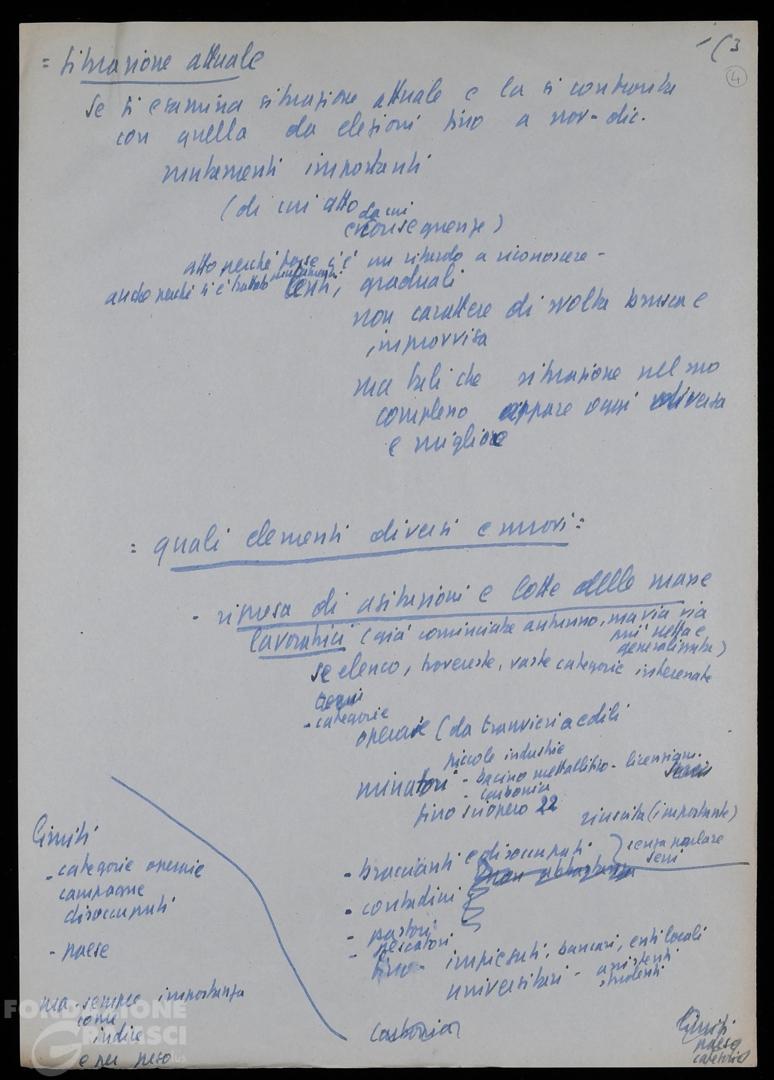 1(3
4
= situazione attuale
Se si esamina situazione attuale e la si confronta
con quella da elezioni fino a nov-dic.
mutamenti importanti
(di cui atto da cui
conseguenze)
atto perché forse c'è un ritardo a riconoscere -
anche perché si è trattato mutamenti lenti, graduali
non carattere di svolta brusca e
improvvisa
ma tali che situazione nel suo
complesso appare oggi diversa
e migliore
= quali elementi diversi e nuovi:
- ripresa di agitazioni e lotte delle masse
lavoratrici (già cominciata autunno, ma via via
più netta e
generalizzata)
Se elenco, trovereste, vaste categorie interessate
- categorie
operaie (da tranvieri a edili
piccole industrie
minatori - bacino metallifero - licenziam.
- Carbonia
fino sciopero 22 riuscita (importante)
- braccianti e disoccupati } senza parlare
- contadini
- pastori
- pescatori
fino - impiegati, bancari, enti locali
universitari - assistenti
studenti
Carbonia
Limiti
- categorie operaie
campagne
disoccupati
- paese
ma sempre importanza
come
indice
e per peso
Limiti
paese
categorie
FONDAZIONE
GRAMSCI